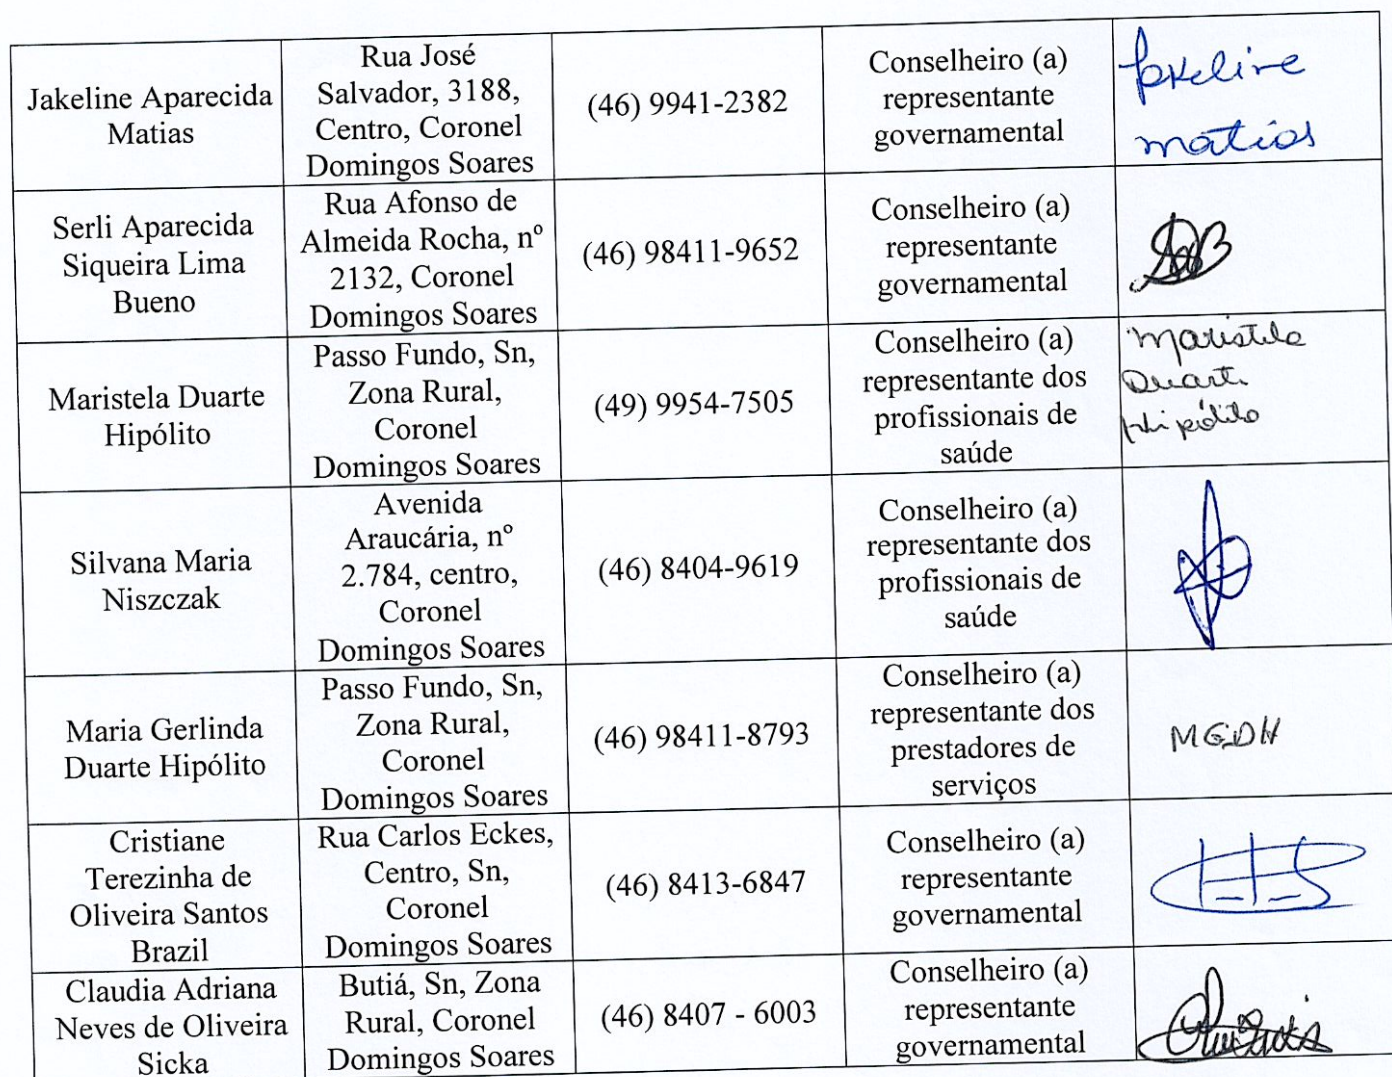 Jakeline Aparecida
Matias
Rua José
Salvador, 3188,
Centro, Coronel
Domingos Soares
(46) 9941-2382
Conselheiro (a)
representante
governamental
Jakeline
matias
Serli Aparecida
Siqueira Lima
Bueno
Rua Afonso de
Almeida Rocha, nº
2132, Coronel
Domingos Soares
(46) 98411-9652
Conselheiro (a)
representante
governamental
Maristela Duarte
Hipólito
Passo Fundo, Sn,
Zona Rural,
Coronel
Domingos Soares
(49) 9954-7505
Conselheiro (a)
representante dos
profissionais de
saúde
Maristela
Duarte
Hipólito
Silvana Maria
Niszczak
Avenida
Araucária, nº
2.784, centro,
Coronel
Domingos Soares
(46) 8404-9619
Conselheiro (a)
representante dos
profissionais de
saúde
Maria Gerlinda
Duarte Hipólito
Passo Fundo, Sn,
Zona Rural,
Coronel
Domingos Soares
(46) 98411-8793
Conselheiro (a)
representante dos
prestadores de
serviços
MGDH
Cristiane
Terezinha de
Oliveira Santos
Brazil
Rua Carlos Eckes,
Centro, Sn,
Coronel
Domingos Soares
(46) 8413-6847
Conselheiro (a)
representante
governamental
Claudia Adriana
Neves de Oliveira
Sicka
Butiá, Sn, Zona
Rural, Coronel
Domingos Soares
(46) 8407 - 6003
Conselheiro (a)
representante
governamental